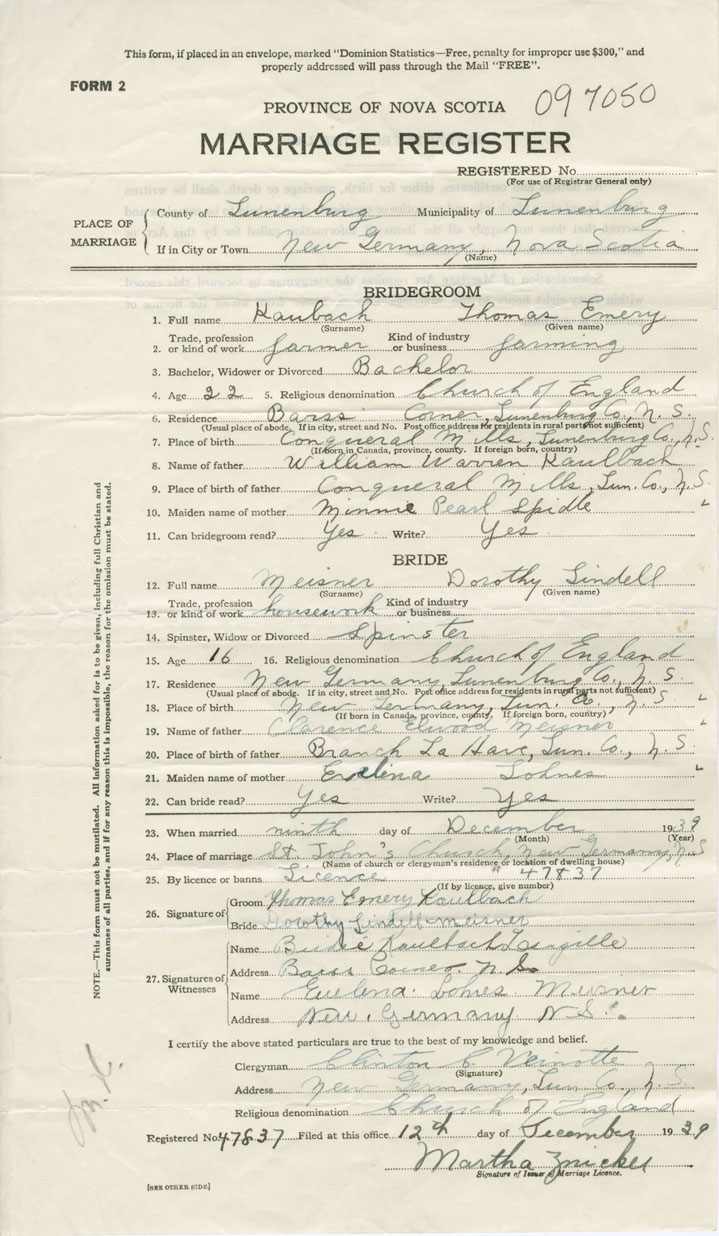 This form, if placed in an envelope, marked "Dominion Statistics—Free, penalty for improper use $300," and
properly addressed will pass through the Mail "FREE".
FORM 2
PROVINCE OF NOVA SCOTIA 097050
MARRIAGE REGISTER
REGISTERED No.
(For use of Registrar General only)
PLACE OF MARRIAGE
County of Lunenburg Municipality of Lunenburg
If in City or Town New Germany, Nova Scotia
(Name)
BRIDEGROOM
1. Full name Kaulbach Thomas Emery
(Surname) (Given name)
2. Trade, profession or kind of work farmer Kind of industry or business farming
3. Bachelor, Widower or Divorced Bachelor
4. Age 22 5. Religious denomination Church of England
6. Residence Barss Corner, Lunenburg Co., N. S.
(Usual place of abode. If in city, street and No. Post office address for residents in rural parts not sufficient)
7. Place of birth Conqueral Mills, Lunenburg Co., N.S.
(If born in Canada, province, county. If foreign born, country)
8. Name of father William Warren Kaulbach
9. Place of birth of father Conqueral Mills, Lun. Co., N.S.
10. Maiden name of mother Minnie Pearl Spidle
11. Can bridegroom read? Yes Write? Yes
BRIDE
12. Full name Meisner Dorothy Lindell
(Surname) (Given name)
13. Trade, profession or kind of work housework Kind of industry or business
14. Spinster, Widow or Divorced Spinster
15. Age 16 16. Religious denomination Church of England
17. Residence New Germany, Lunenburg Co., N. S.
(Usual place of abode. If in city, street and No. Post office address for residents in rural parts not sufficient)
18. Place of birth New Germany, Lun. Co., N. S.
(If born in Canada, province, county. If foreign born, country)
19. Name of father Clarence Elwood Meisner
20. Place of birth of father Branch La Have, Lun. Co., N. S.
21. Maiden name of mother Evelena Lohnes
22. Can bride read? Yes Write? Yes
23. When married ninth day of December 1939
(Month) (Year)
24. Place of marriage St. John's Church, New Germany, N.S
(Name of church or clergyman's residence or location of dwelling house)
25. By licence or banns Licence # 47837
(If by licence, give number)
26. Signature of
Groom Thomas Emery Kaulbach
Bride Dorothy Lindell Meisner
27. Signatures of Witnesses
Name Kaulbach
Address Barss Corner. N.S.
Name Evelena Lohnes Meisner
Address New Germany N.S.
I certify the above stated particulars are true to the best of my knowledge and belief.
Clergyman Clinton C. Veinotte
(Signature)
Address New Germany, Lun. Co., N. S.
Religious denomination Church of England
Registered No. 47837 Filed at this office 12th day of December 1939
Martha Zwicker
Signature of Issuer of Marriage Licence.
[SEE OTHER SIDE]
NOTE.—This form must not be mutilated. All information asked for is to be given, including full Christian and
surnames of all parties, and if for any reason this is impossible, the reason for the omission must be stated.